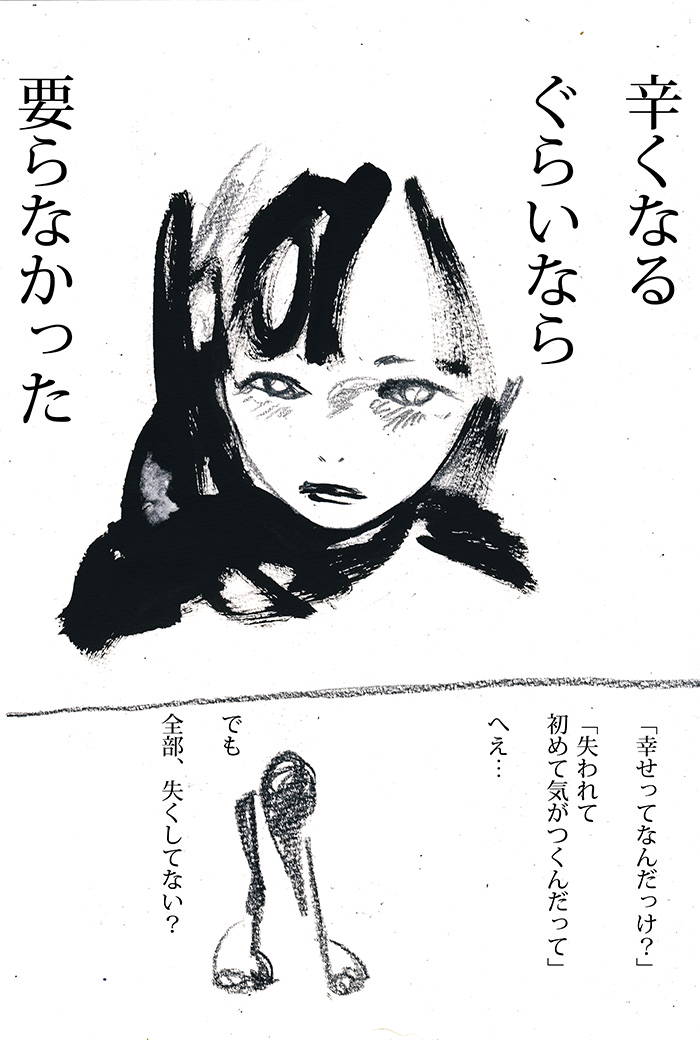 辛くなる
ぐらいなら
要らなかった
「幸せってなんだっけ？」
「失われて
初めて気がつくんだって」
へえ…
でも
全部、失くしてない？